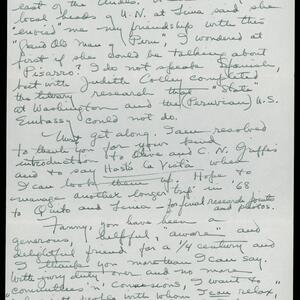 east of the Andes. or
local heads of U.N. at Lima said she
"envied" me my friendship with this
"Grand Old Man of Peru", I wondered at
first if she could be talking about
Pizarro. I do not speak Spanish,
but with Judith Colley completed
the library research that "State"
at Washington and the Peruvian U.S.
Embassy could not do.
Must get along. I am resolved
to thank you for your kind
introduction to Dave and C. N. Griffis
and to say Hasta La Vista when
I can look them up. Hope to
manage another longer trip in '68
to Quito and Lima - for final records
and photos.
Fanny, you have been a
generous, helpful "aware" and
delightful friend for a 1/4 century and
I thank you more than I can say.
With jury duty over and no more
committees 'n' concessions, I want to
people with whom I can relax,